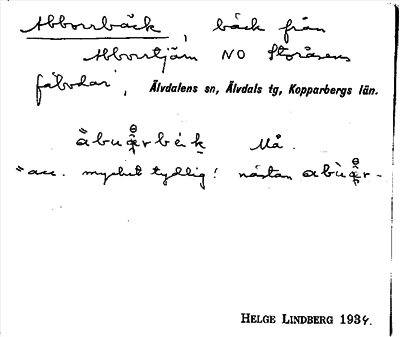 Abborrbäck, bäck från
Abborrtjärn NO Storåsens
fäbodar, Älvdalens sn, Älvdals tg, Kopparbergs län.
Må.
acc. mycket tydlig! nästan
HELGE LINDBERG 1934.